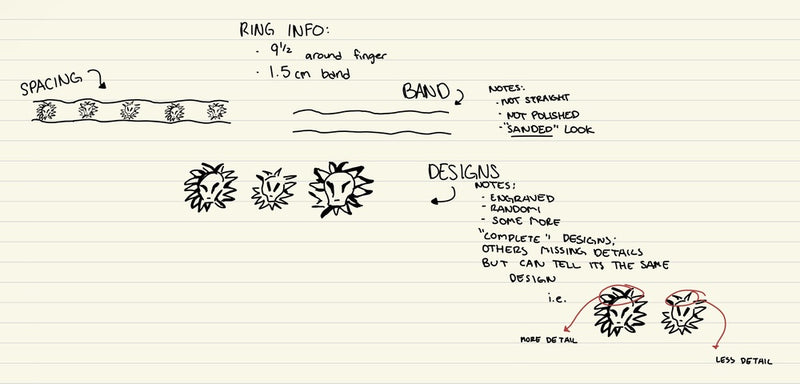 RING INFO:
· 9 1/2 around finger
· 1.5 cm band
SPACING
BAND
NOTES:
· NOT STRAIGHT
· NOT POLISHED
· "SANDED" LOOK
DESIGNS
NOTES:
· ENGRAVED
· RANDOM
· SOME MORE
"COMPLETE" DESIGNS;
OTHERS MISSING DETAILS
BUT CAN TELL ITS THE SAME
DESIGN
i.e.
MORE DETAIL
LESS DETAIL